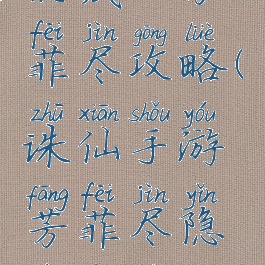 fēi jìn gōng lüè
菲尽攻略(
zhū xiān shǒu yóu
诛仙手游
fāng fēi jìn yǐn
芳菲尽隐